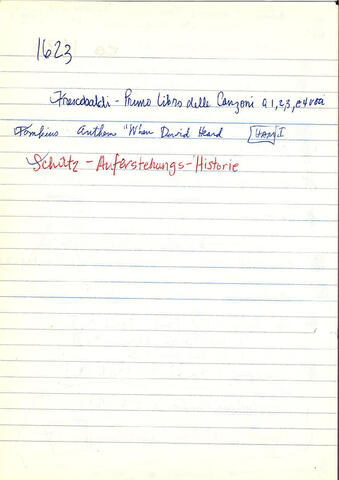 1623
Frescobaldi - Primo Libro delle Canzoni a 1, 2, 3, e 4 voci
Tomkins Anthem "When David Heard HAM I
Schütz - Auferstehungs-Historie